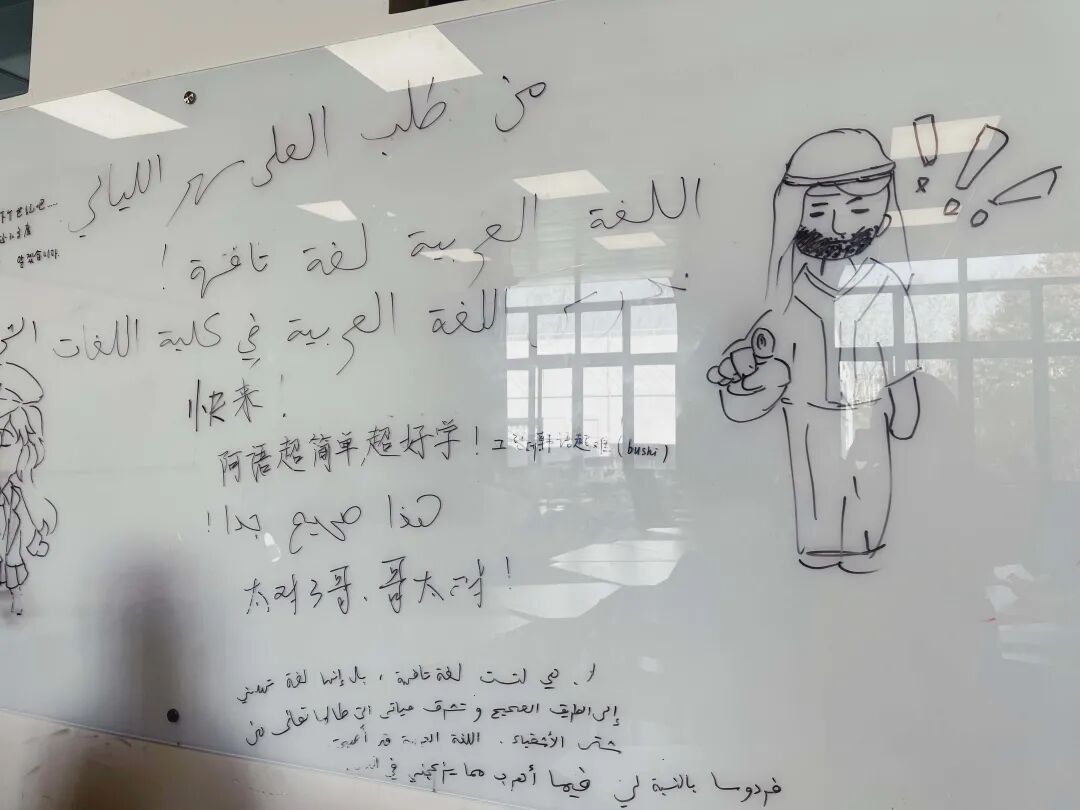 من طلب العلى سهر الليالي
اللغة العربية لغة تافهة!
للغة العربية في كلية اللغات
快来!
阿语超简单,超好学! (bushi)
هذا صحيح جدا!
太对了哥、哥太对!
لا. هي لتست لغة تافهة، بل إنها لغة
إلى الطريق الصحيح و تشرق حياتي التي طالما تعاني من
شتى الأشقياء. اللغة العربية قد
فردوسا بالنسبة لي فيما أهرب مما يزعجني في